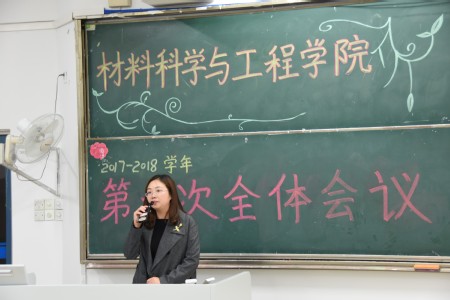 材料科学与工程学院
2017-2018 学年
第 次全体会议